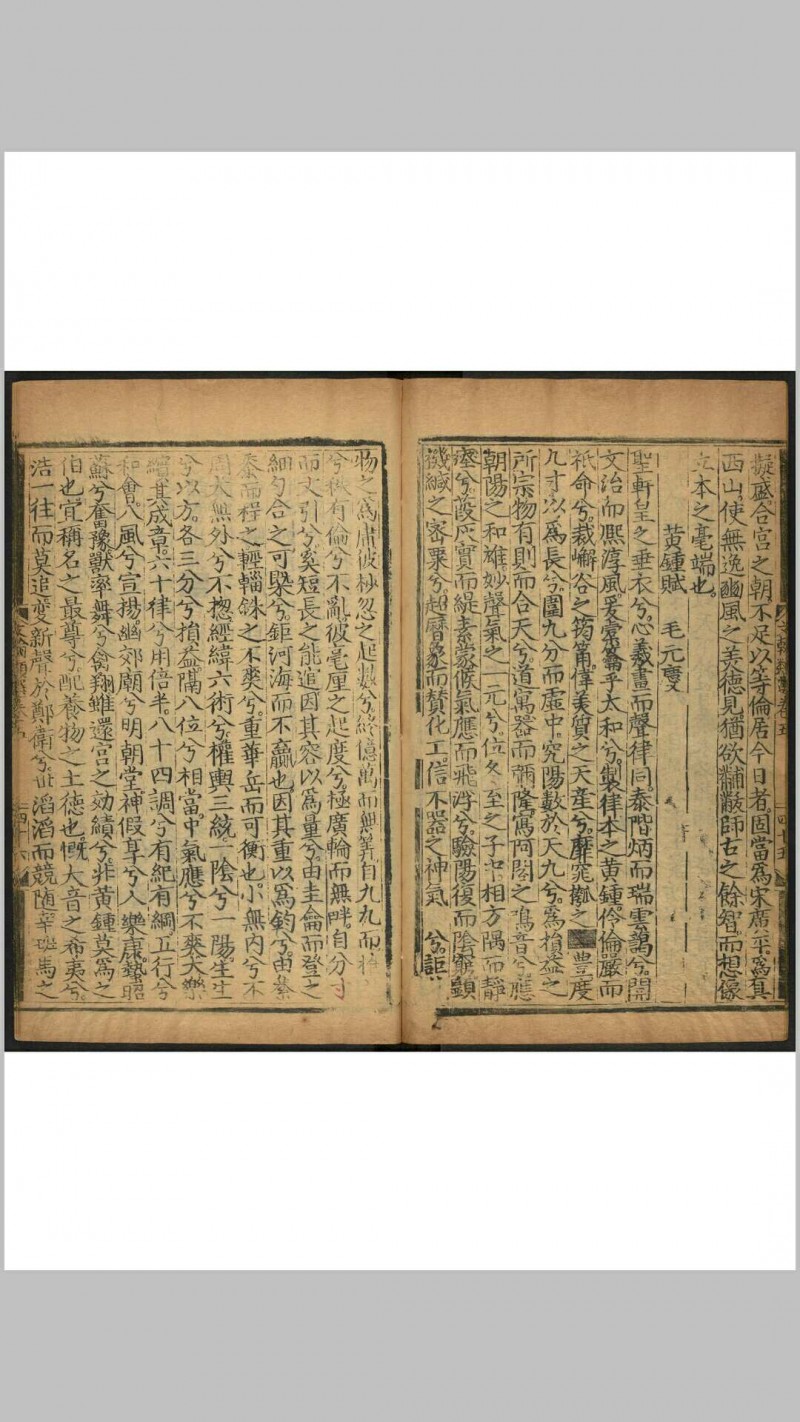 擬盛合宮之朝不足以等倫居今日者固當爲宋廣平寫其
西山使無逸豳風之美德見猶欲黼黻師古之餘智而想像
立本之毫端也
黃鍾賦 毛元慶
聖軒皇之垂衣兮心羲畫而聲律同泰階炳而瑞雲藹兮開
文治而凞淳風爰橐籥乎太和兮製律本之黃鍾伶倫嚴而
祇命兮裁嶰谷之筠篇偉美質之天產兮靡窕㼐之豐度
九寸以爲長兮圍九分而虛中究陽數於天九兮爲損益之
所宗物有則而合天兮道寓器而彌隆寫阿閣之鳴音兮應
朝陽之和雄妙聲氣之一元兮位冬至之子中相方隅而靜
瘞兮葭灰實而緹素蒙候氣應而飛浮兮驗陽復而陰窮鎖
機緘之密栗兮超曆象而賛化工信不器之神氣兮詎
物之爲庸彼杪忽之起數兮終億萬而無筭自九九而
兮秩有倫兮不亂彼毫厘之起度兮極廣輪而無畔自分寸
而丈引兮奚短長之能逭因其容以爲量兮由圭龠而登之
細勺合之可槩兮鉅河海而不贏也因其重以爲鈞兮由絫
黍而程之輕輜銖之不爽兮重華岳而可衡也小無內兮不
周大無外兮不摠經緯六術兮權輿三統一陰兮一陽生生
兮以方各三分兮損益隔八位兮相當中氣應兮不爽大樂
繒其成章六十律兮用倍半八十四調兮有紀有綱五行兮
和會八風兮宣揚幽郊廟兮明朝堂神假享兮人樂康蟄昭
蘇兮奮豫獸率舞兮禽翔雖還宮之効績兮非黃鍾莫爲之
伯也宜稱名之最尊兮配養物之土徳也慨大音之希夷兮
浩一往而莫追變新聲於鄭衛兮世滔滔而競隨辛班馬之